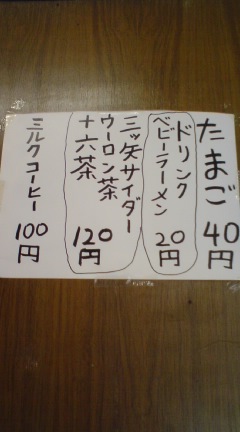 たまご 40円
ドリンク
ベビーラーメン 20円
三ッ矢サイダー
ウーロン茶
十六茶 120円
ミルクコーヒー 100円